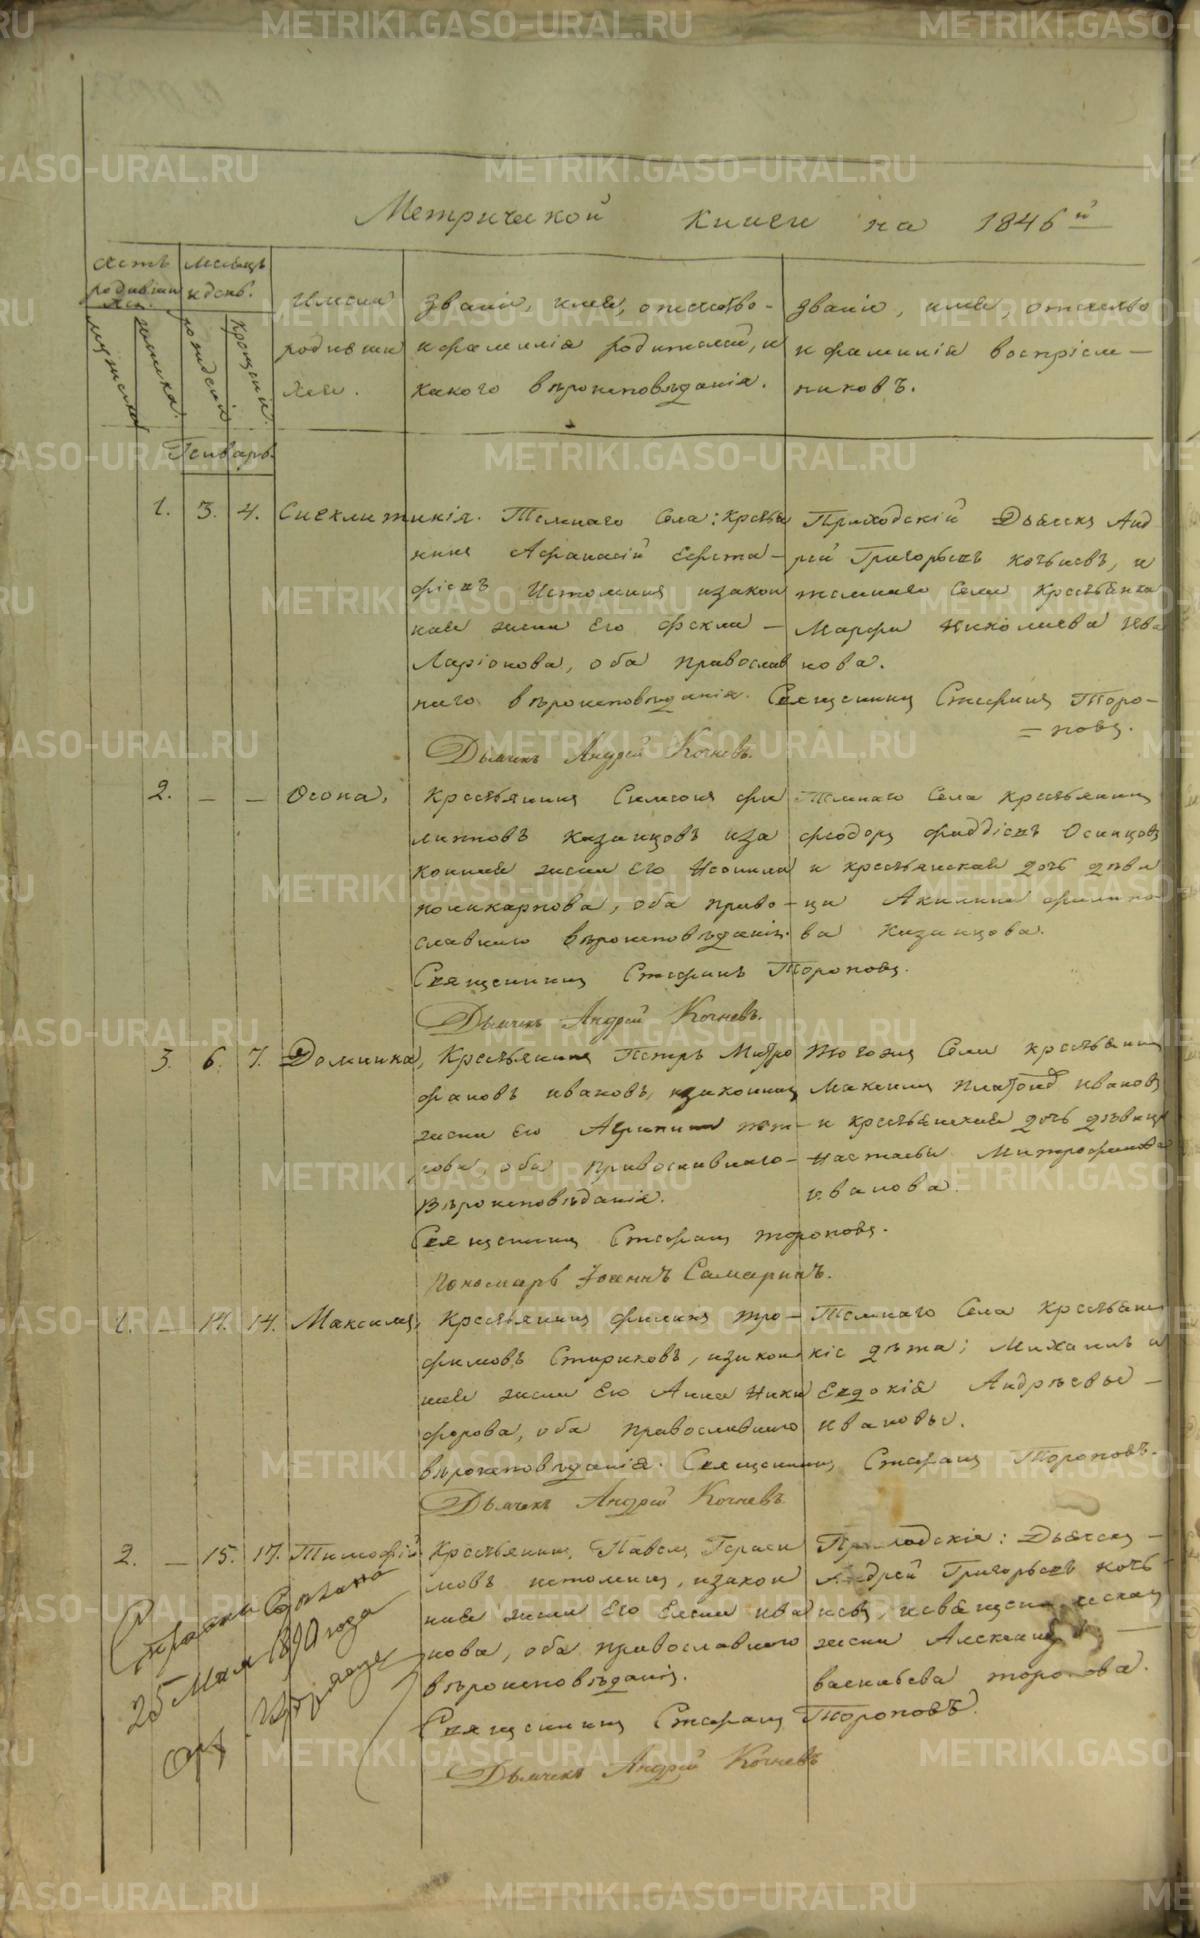 Метрической книги на 1846й
Счетъ родивши хся.
Месяцъ и день.
мужеска
женска.
рождения
крещения.
Имена родивши хся.
Званіе, имя, отчество
и фамилія родителей, и
какого вѣроисповѣданія.
Званіе, имя, отчество
и фамилія воспріем—
никовъ.
Генварь.
1. 3. 4. Синклитикія. Темнаго Села: Крестья
нинъ Афанасій Евста—
фіевъ Истоминъ и закон
ная жена Его Фекла —
Ларіонова, оба православ
наго вѣроисповѣданія. Священникъ Стефанъ Торо—
=повъ.
Дьячекъ Андрей Кочневъ.
Приходскій Дьячекъ Анд
рей Григорьевъ Кочьневъ, и
темнаго Села Крестьянка
Марфа Николаева Ива
нова.
2. — — Ѳеона, Крестьянинъ Симеонъ Фи
липповъ Казанцовъ и за
конная жена Его Неонила
поликарпова, оба право—
славнаго вѣроисповѣданія.
Священникъ Стефанъ Тороповъ.
Дьячекъ Андрей Кочневъ.
Темнаго Села крестьянинъ
Феодоръ Фаддіевъ Осинцовъ
и крестьянская дочь дѣви
ца Акилина Филипо—
ва Казанцова.
3. 6. 7. Домника, Крестьянинъ Петръ Митро
фановъ ивановъ, и законная
жена его Агрипина пет—
рова оба Православнаго—
Вѣроисповѣданія.
Священникъ Стефанъ тороповъ.
Пономарь Іоаннъ Самаринъ.
Тогоже Села крестьянинъ
Максимъ Ивановъ
и крестьянская дочь дѣвица
Настасья Митрофанова
иванова.
1. — 14. 14. Максимъ, Крестьянинъ Филипъ Тро—
фимовъ Стариковъ, и закон
ная жена Его Анна Ники
форова, оба православнаго
вѣроисповѣданія. Священникъ Стефанъ Тороповъ.
Дьячекъ Андрей Кочневъ
Темнаго Села Крестьянс
кіе дѣти; Михаилъ и
Евдокія Андрѣевы —
Ивановы.
2. — 15. 17. Тимофѣй Крестьянинъ, Павелъ Гераси
мовъ истоминъ, и закон
ная жена Его Елена ива
нова, оба православнаго
вѣроисповѣданія.
Священникъ Стефанъ Тороповъ.
Дьячекъ Андрей Кочневъ
Приходскіе: Дьячекъ —
Андрей Григорьевъ Кочь—
невъ, и священническая
жена
васильева торопова.
Справка Сделана
25 Мая 1890 года
METRIKI.GASO-URAL.RU